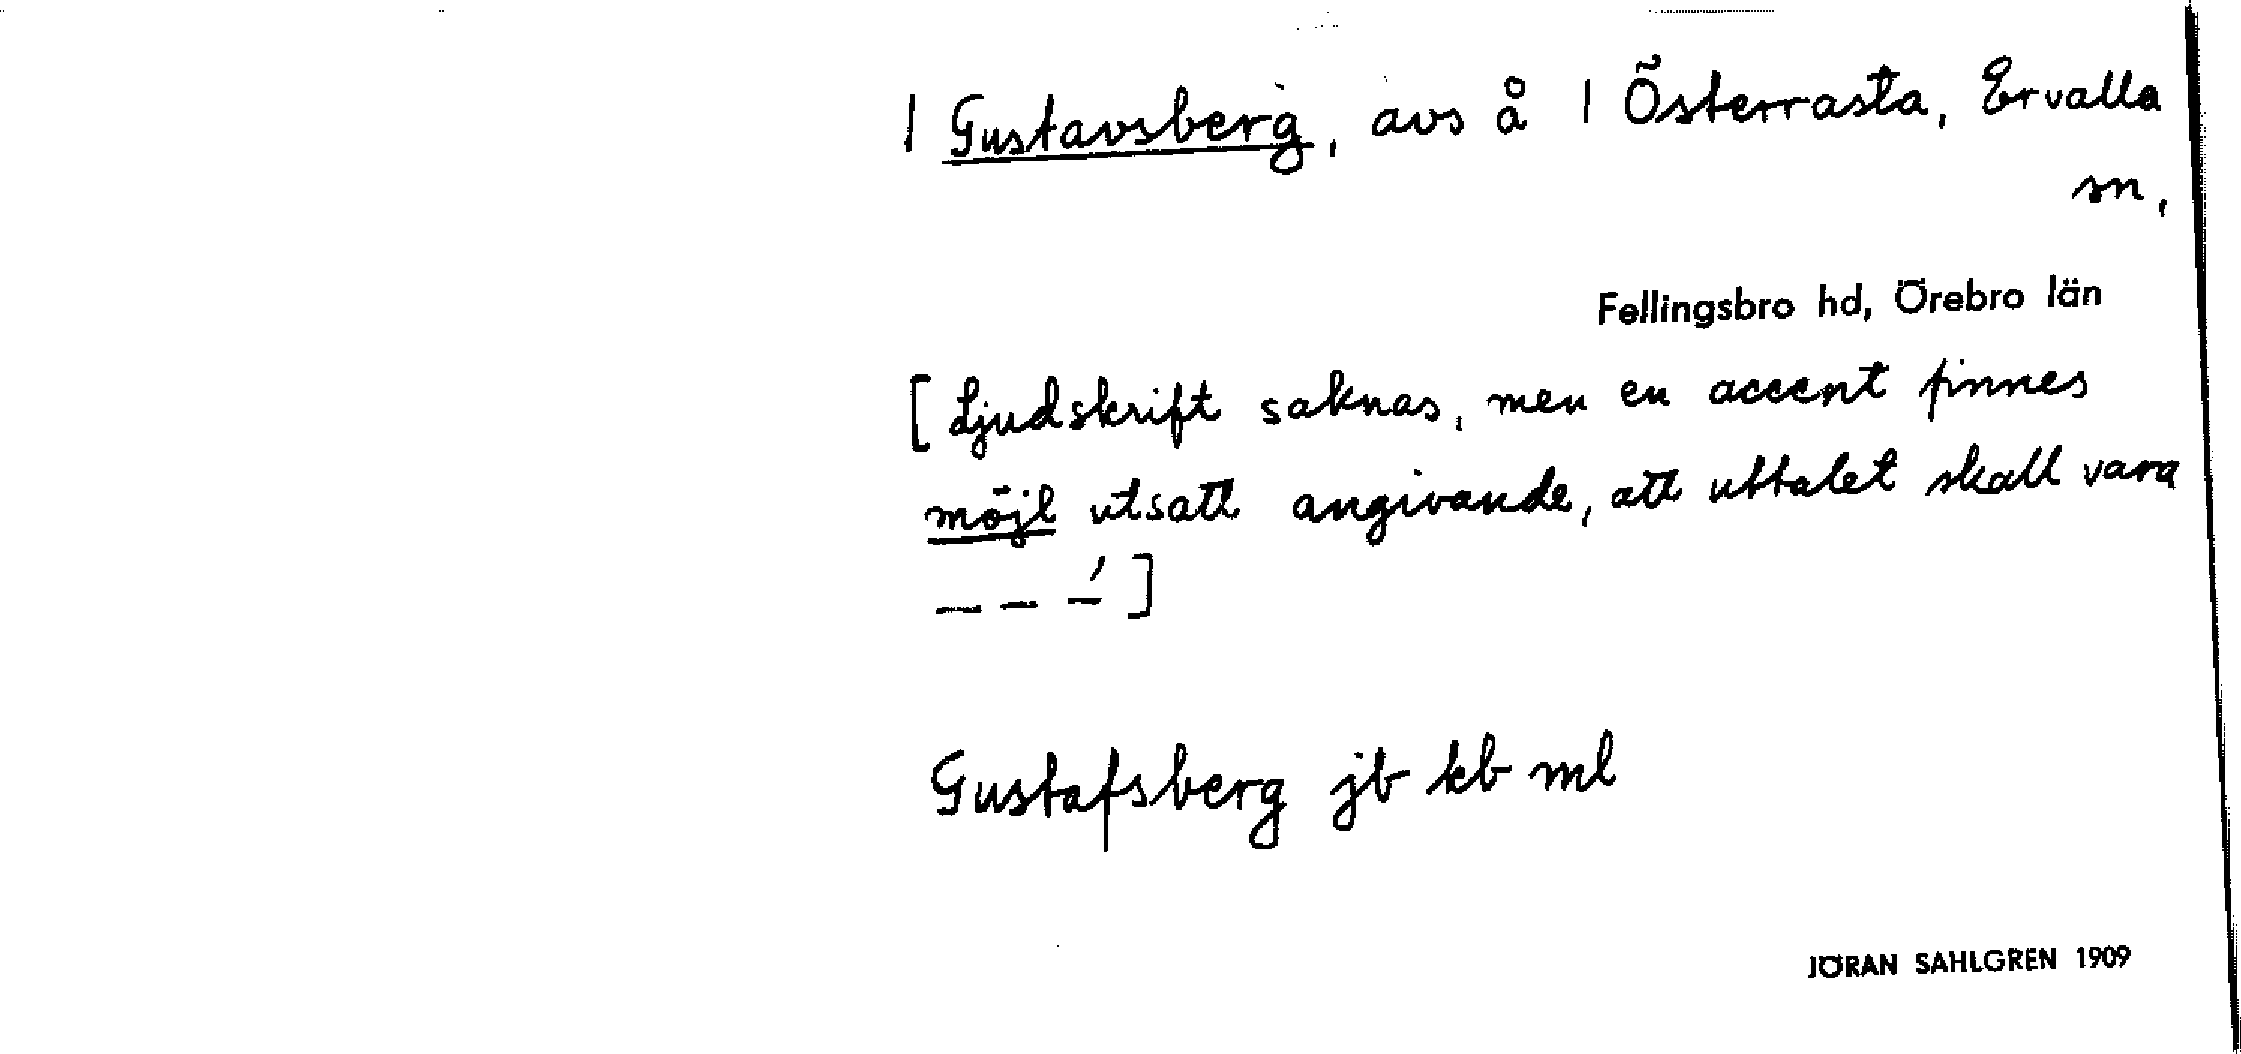 | Gustavsberg, avs å | Österrasta, Ervalla
sn,
Fellingsbro hd, Örebro län
[Ljudskrift saknas, men en accent finnes
möjl utsatt angivande, att uttalet skall vara
_ _ _́ ]
Gustafsberg jb kb ml
JÖRAN SAHLGREN 1909